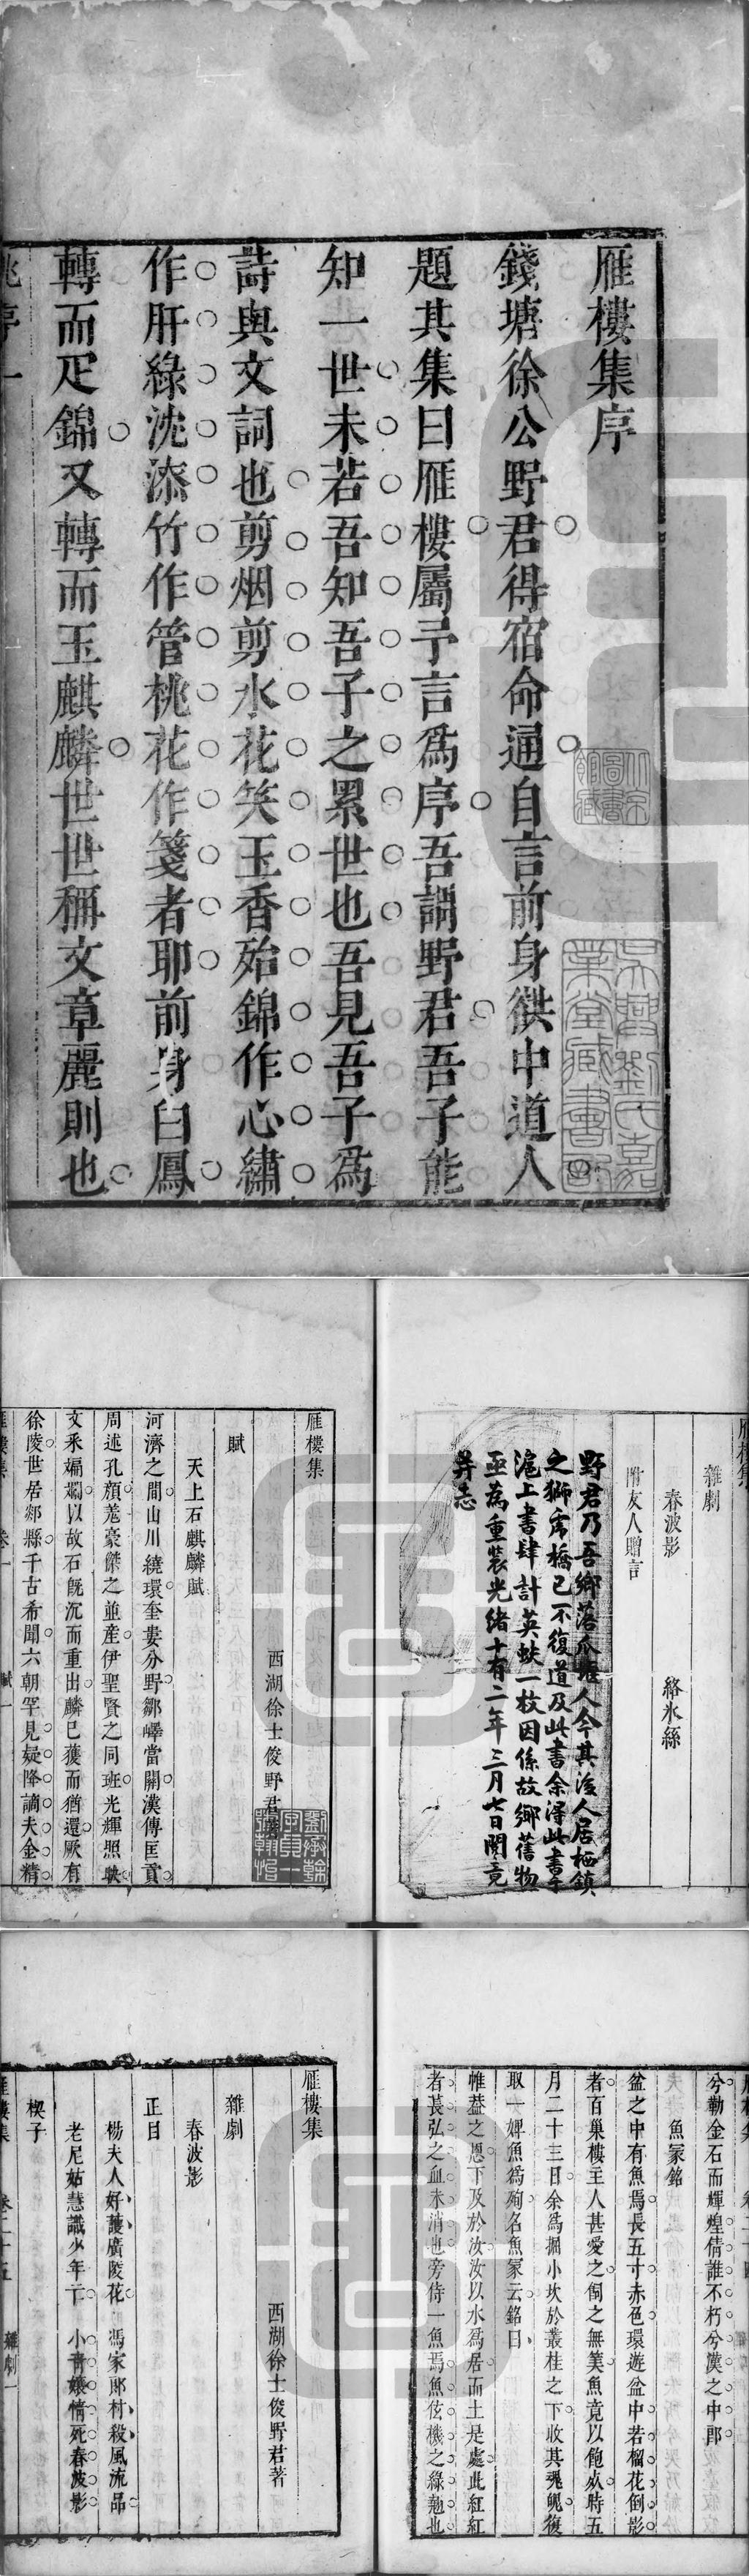 雁樓集序
錢塘徐公野君得宿命通自言前身筇中道人
題其集曰雁樓屬予言爲序吾謂野君吾子能
知一世未若吾知吾子之累世也吾見吾子爲
詩與文詞也剪烟剪水花笑玉香殆錦作心繡
作肝綠沈漆竹作管桃花作箋者耶前身白鳳
轉而疋錦又轉而玉麒麟世世稱文章麗則也
姚序一
吳興劉氏嘉
業堂藏書印
雁樓集
雜劇
春波影
絡氷絲
附友人贈言
野君乃吾鄉落瓜塘人今其後人居栖鎮
之獅虎橋已不復道及此書余得此書于
滬上書肆計英蚨一枚因係故鄉舊物
亟為重裝光緒十有二年三月七日閱竟
并志
雁樓集
西湖徐士俊野君著
劉承幹
字貞一
號翰怡
賦
天上石麒麟賦
河濟之間山川繞環奎婁分野鄒嶧當關漢傳匡貢
周述孔顔羗豪傑之並產伊聖賢之同班光輝照映
文采斒斕以故石旣沉而重出麟已獲而猶還厥有
徐陵世居郯縣千古希聞六朝罕見疑降謫夫金精
雁樓集
卷一
賦一
兮勒金石而輝煌倩誰不朽兮漢之中郎
魚冢銘
盆之中有魚焉長五寸赤色環遊盆中若榴花倒影
者百巢樓主人甚愛之伺之無笑魚竟以飽死時五
月二十三日余爲掘小坎於叢桂之下收其魂魄復
取一婢魚爲殉名魚冢云銘曰
帷葢之恩下及於汝汝以水爲居而土是處此紅紅
者萇弘之血未消也旁侍一魚焉魚伭機之綠翹也
雁樓集
西湖徐士俊野君著
雜劇
春波影
正目
楊夫人好護廣陵花
馮家郎村殺風流品
老尼姑慧識少年亡
小青孃情死春波影
楔子
雁樓集
卷二十五
雜劇一